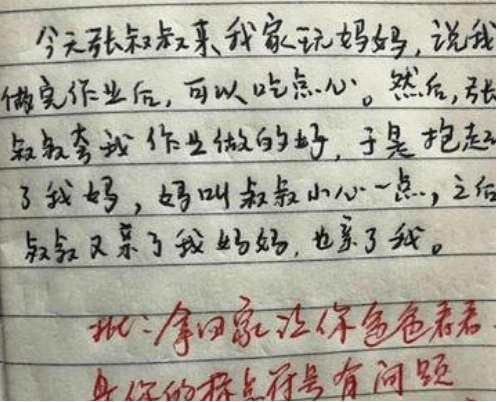 今天张叔叔来我家玩妈妈,说我
做完作业后,可以吃点心。然后,张
叔叔夸我作业做的好,于是抱起
了我妈,妈叫叔叔小心一点,之后
叔叔又亲了我妈妈,也亲了我。
批:拿回家让你爸爸看看
是你的标点符号有问题